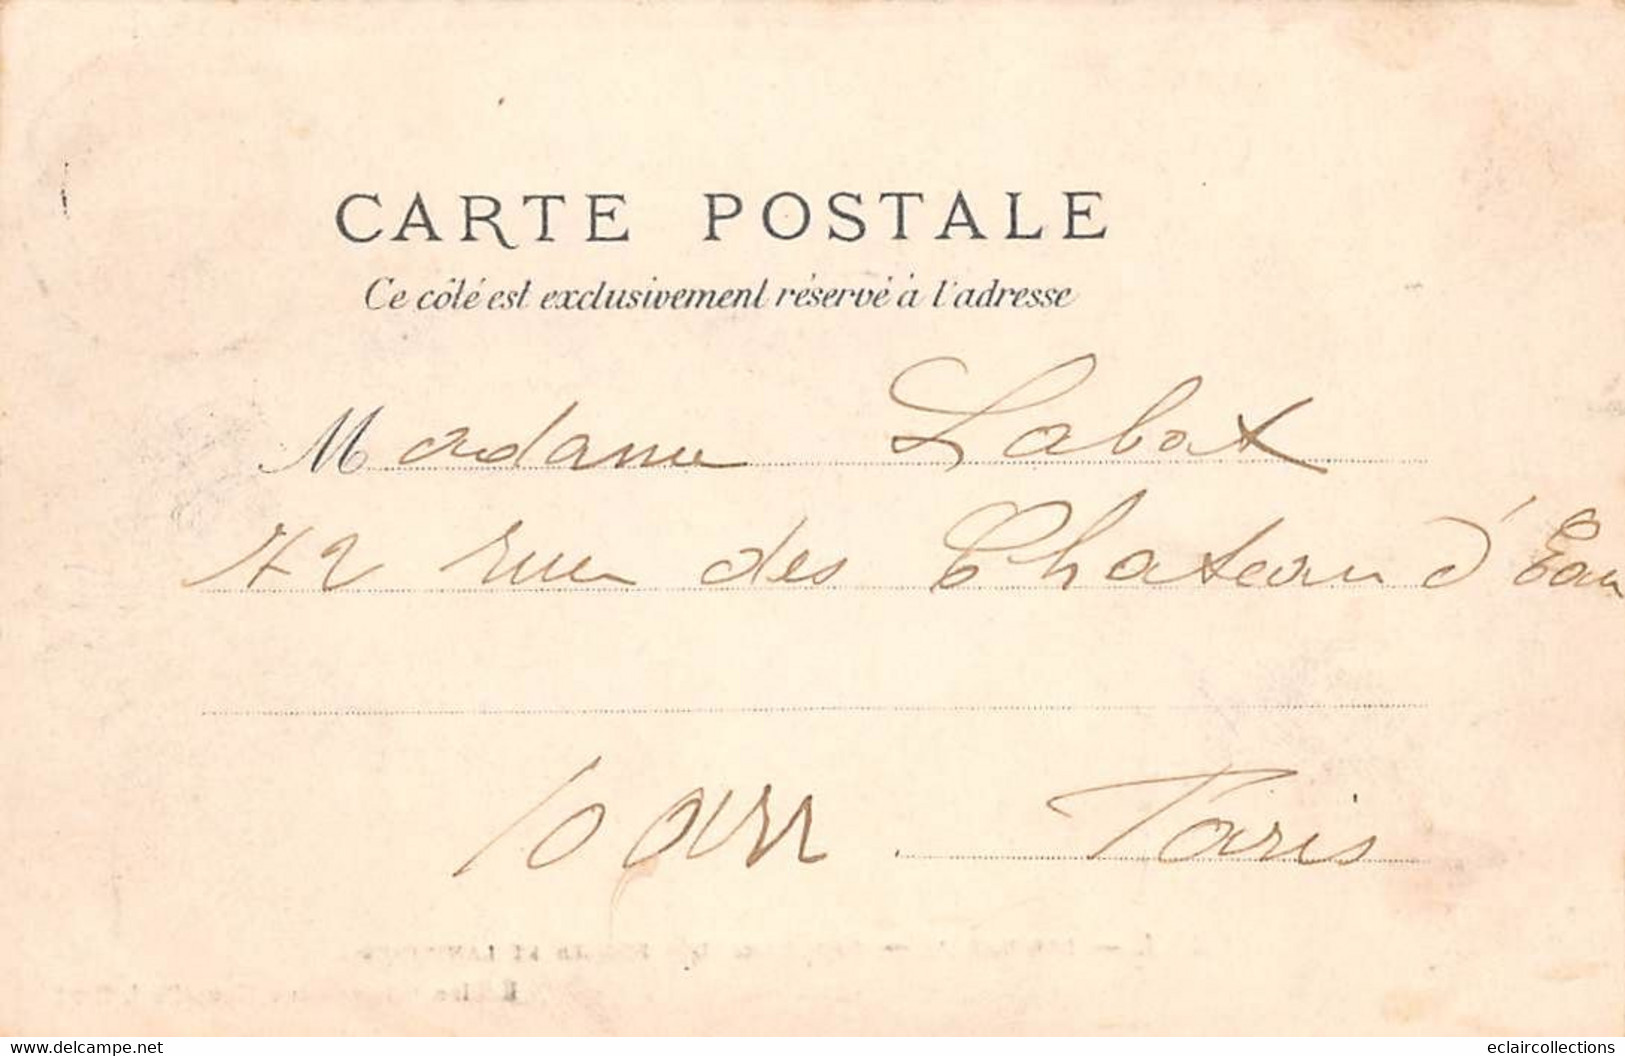 CARTE POSTALE
Ce côté est exclusivement réservé à l'adresse
Madame Labat
42 rue des Chateau d'Eau
10 arr. Paris
delcampe.net
eclaircollections